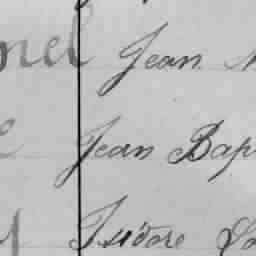 nel Jean
Jean Bap
Isidore